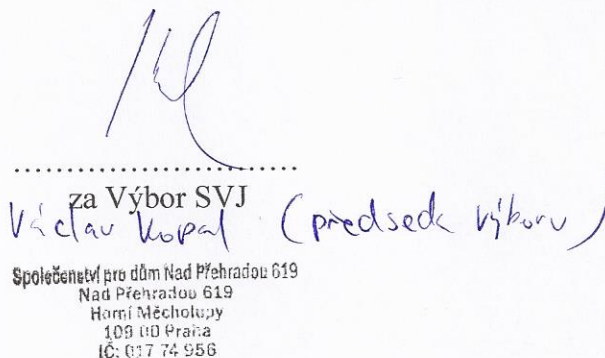 ..............................
za Výbor SVJ
Václav Kopal (předseda výboru)
Společenství pro dům Nad Přehradou 619
Nad Přehradou 619
Horní Měcholupy
109 00 Praha
IČ: 017 74 956